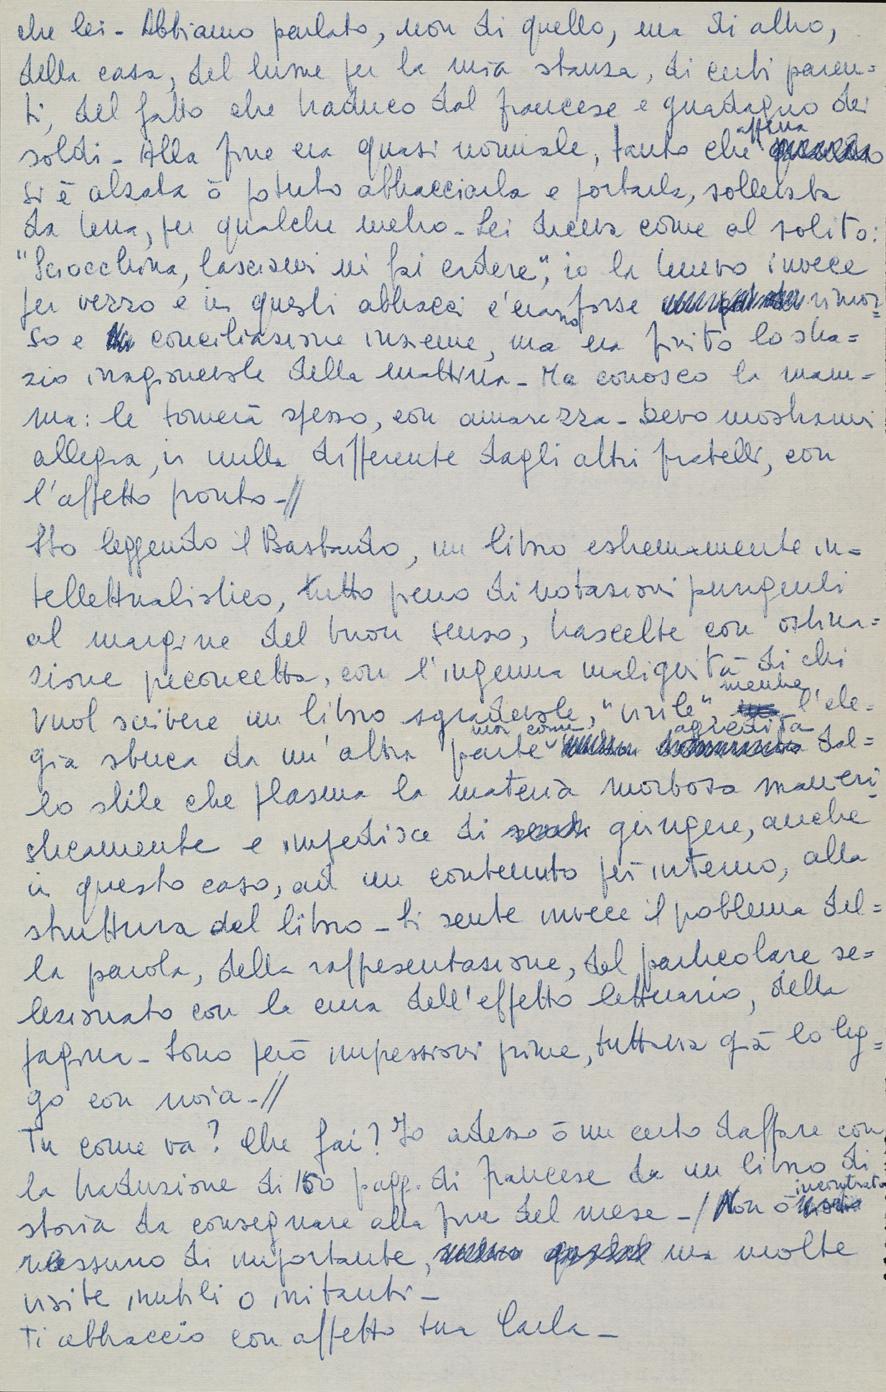 che lei - Abbiamo parlato, non di quello, ma di altro,
della casa, del lume per la mia stanza, di certi paren=
ti, del fatto che traduco dal francese e guadagno dei
soldi - Alla fine era quasi normale, tanto che appena
si è alzata ò potuto abbracciarla e portarla, sollevata
da terra, per qualche metro - Lei diceva come al solito:
"Sciocchina, lasciami mi fai cadere", io la tenevo invece
per vezzo e in quegli abbracci c'erano forse rimor=
so e conciliazione insieme, ma era finito lo stra=
zio irragionevole della mattina - Ma conosco la mam=
ma: le tornerà spesso, con amarezza - Devo mostrarmi
allegra, in nulla differente dagli altri fratelli, con
l'affetto pronto -//
Sto leggendo il Bastardo, un libro estremamente in=
tellettualistico, tutto pieno di notazioni pungenti
al margine del buon senso, trascelte con ostina=
zione preconcetta, con l'ingenua malignità di chi
vuol scrivere un libro sgradevole, "virile", mentre l'ele=
gia sbuca da un'altra parte non come aggredita dal=
lo stile che plasma la materia morbosa manieri=
sticamente e impedisce di giungere, anche
in questo caso, ad un contenuto più interno, alla
struttura del libro - Si sente invece il problema del=
la parola, della rappresentazione, del particolare se=
lezionato con la cura dell'effetto letterario, della
pagina - Sono però impressioni prime, tuttavia già lo leg=
go con noia -//
Tu come va? Che fai? Io adesso ò un certo daffare con
la traduzione di 150 pagg. di francese da un libro di
storia da consegnare alla fine del mese -/ Non ò incontrato
nessuno di importante, ma molte
visite inutili o irritanti -
Ti abbraccio con affetto tua Carla -